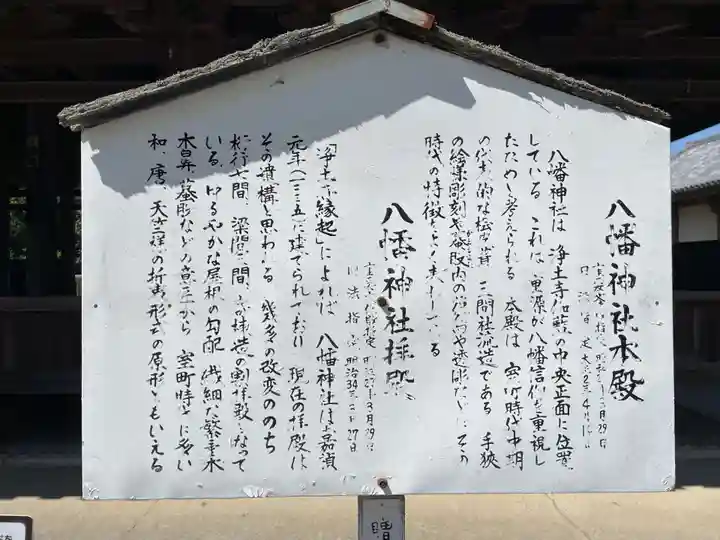 八幡神社本殿
重要 指定 昭和
旧 指定 大正2年4月
八幡神社は、浄土寺伽藍の中央正面に位置
している。これは、重源が八幡信仰を重視し
たためと考えられる。本殿は、室町時代中期
の代表的な桧皮葺、三間社流造である。手狭
の絵様彫刻や蟇股内の や透彫などにその
時代の特徴をよく
八幡神社拝殿
重要 指定 昭和27年3月29日
旧法指定 明治34年3月27日
「浄土寺縁起」によれば、八幡神社は嘉禎
元年(一二三五)に建てられており、現在の拝殿は
その遺構と思われる。幾多の改変ののち
桁行七間、梁間三間、 造の割拝殿となって
いる。ゆるやかな屋根の勾配、繊細な繁垂木
木鼻、蟇股などの意匠から、室町時代に多い
和、唐、天竺様の折衷形式の原形ともいえる
贈